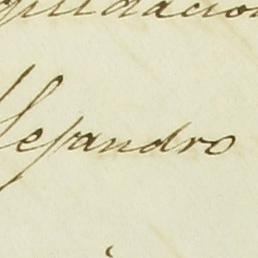 quidacion
Alejandro